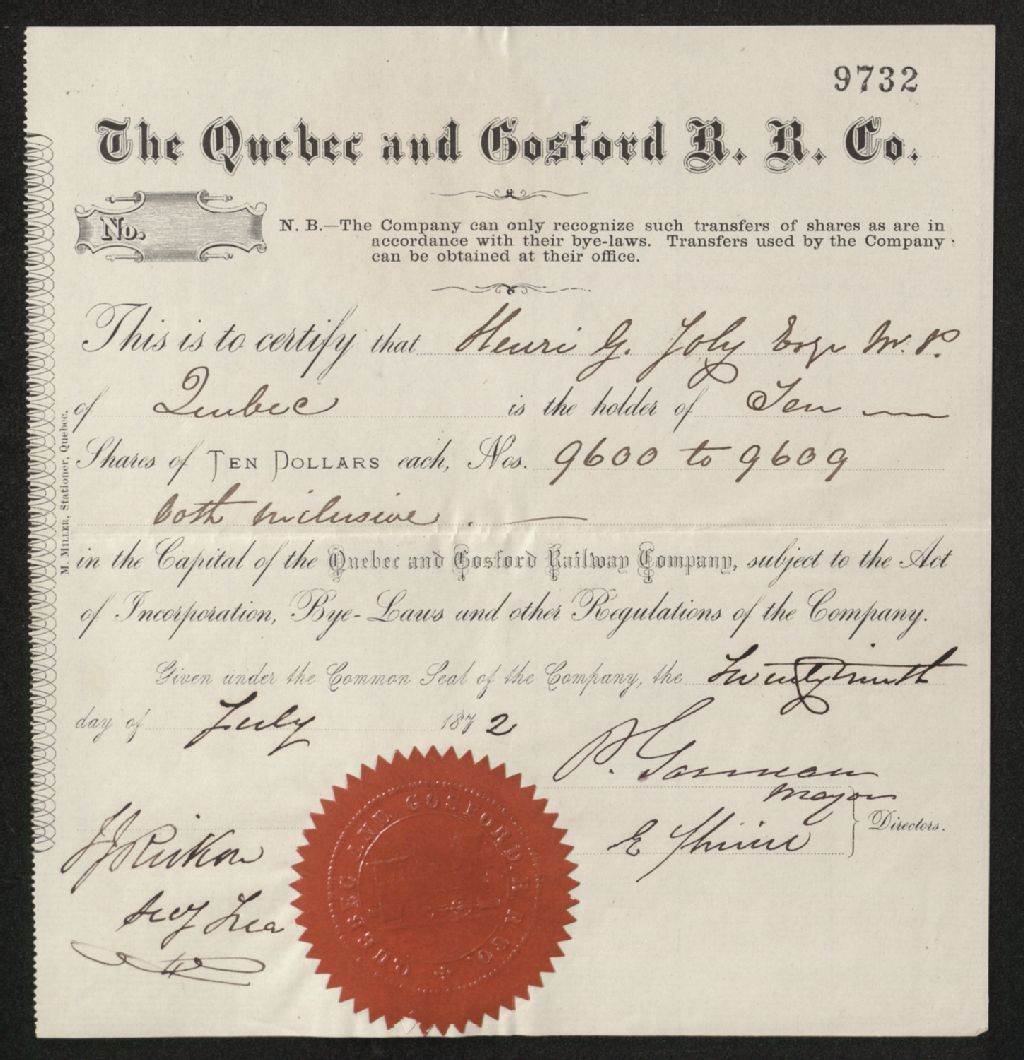 9732
The Quebec and Gosford R. R. Co.
No.
N. B.—The Company can only recognize such transfers of shares as are in
accordance with their bye-laws. Transfers used by the Company
can be obtained at their office.
This is to certify that Henri G. Joly Esqr M.P.
of Quebec is the holder of Ten
Shares of TEN DOLLARS each, Nos. 9600 to 9609
both inclusive.
in the Capital of the Quebec and Gosford Railway Company, subject to the Act
of Incorporation, Bye-Laws and other Regulations of the Company.
Given under the Common Seal of the Company, the Twentyninth
day of July 1872
P. Garneau
Mayor
E
Directors.
Secy Trea
M. MILLER, Stationer, Quebec.
QUEBEC AND GOSFORD R. R. CO.